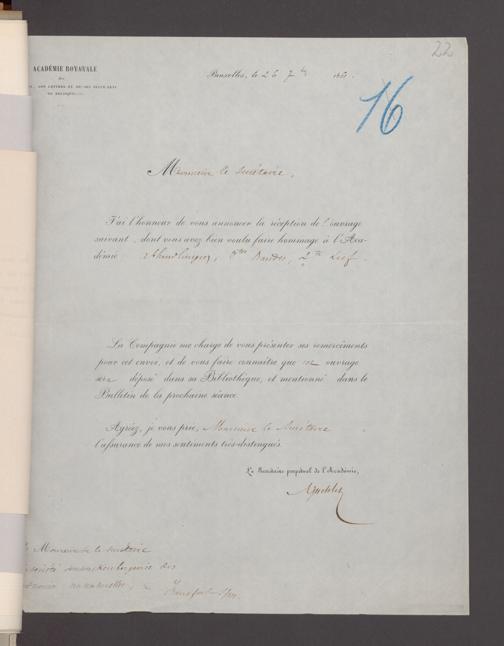 22
ACADÉMIE ROYALE
DES LETTRES ET DES BEAUX-ARTS
DE BELGIQUE.
Bruxelles, le 26 7bre 186
16
Monsieur le Secrétaire,
J'ai l'honneur de vous annoncer la réception de l'ouvrage
suivant, dont vous avez bien voulu faire hommage à l'Aca-
démie : Abhandlungen, Bandes, 2te Heft.
La Compagnie me charge de vous présenter ses remercîments
pour cet envoi, et de vous faire connaître que cet ouvrage
sera déposé dans sa Bibliothèque, et mentionné dans le
Bulletin de la prochaine séance.
Agréez, je vous prie, Monsieur le Secrétaire
l'assurance de mes sentiments très-distingués.
Le Secrétaire perpétuel de l'Académie,
Quetelet
Monsieur le Secrétaire
société des
naturelles, à Francfort s/m.